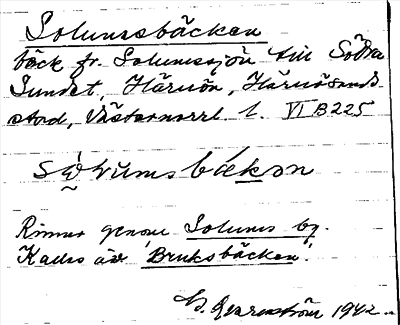 Solumsbäcken
bäck fr. Solumssjön till Södra
Sundet, Härnön, Härnösands
stad, Västernorrl. l. VI B 225
Rinner genom Solums by.
Kallas äv. "Bruksbäcken".
1942